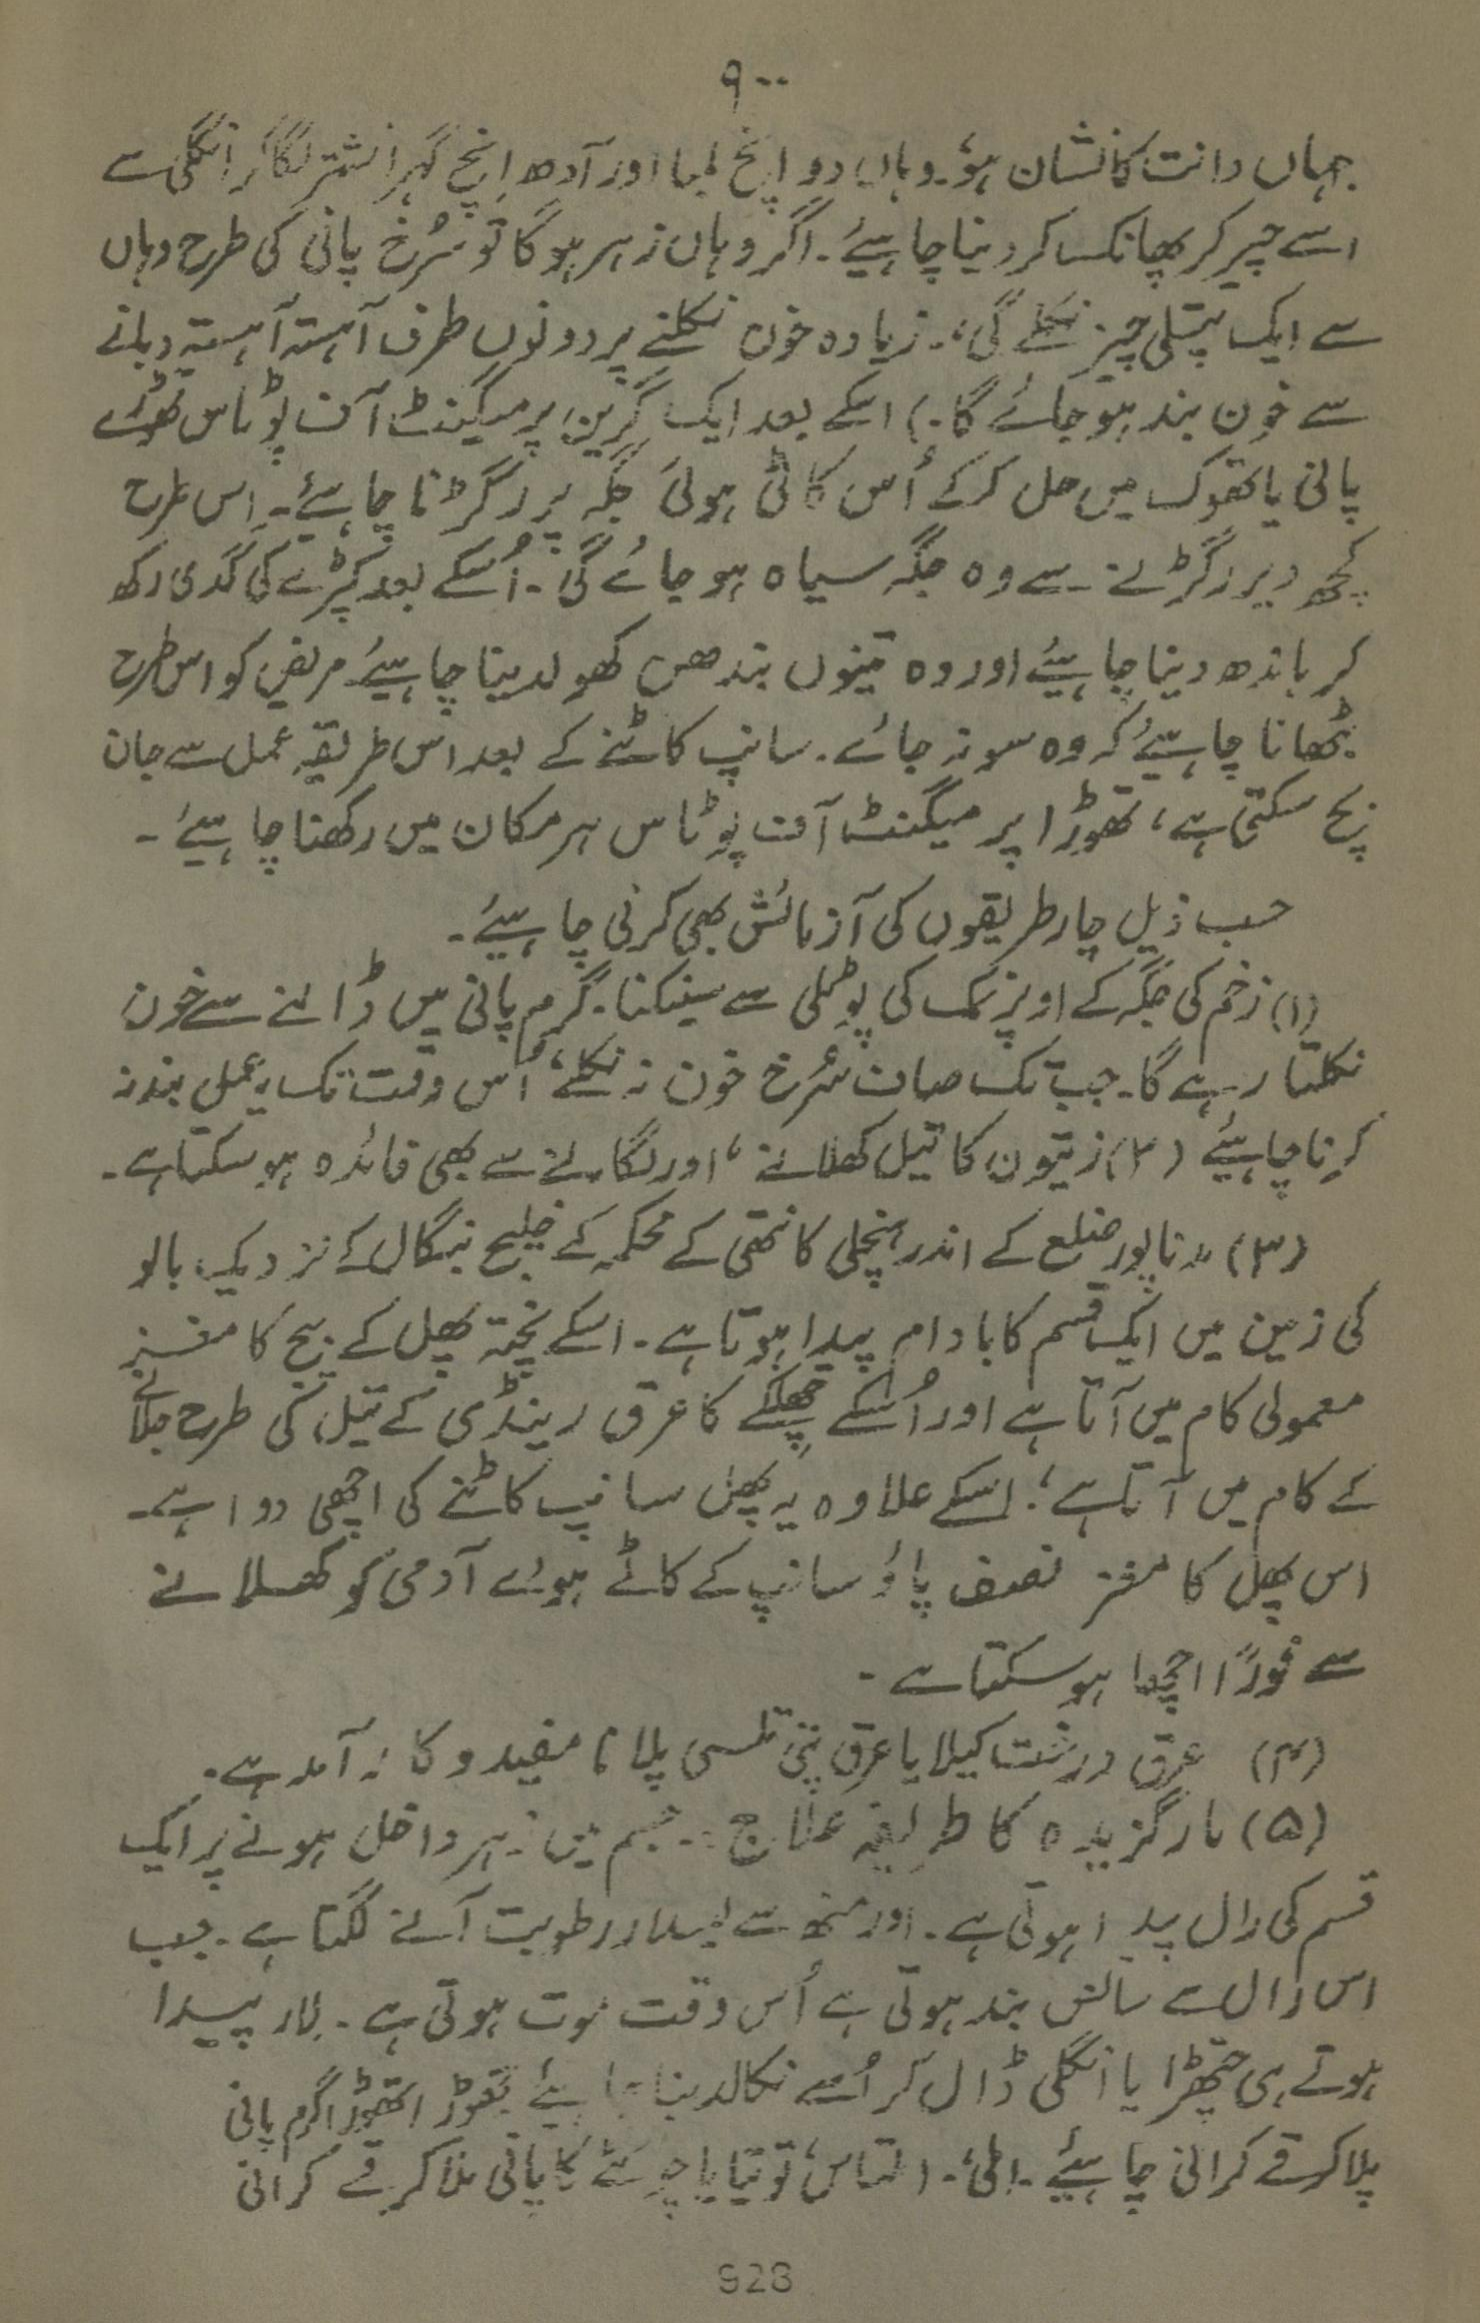 ۹۰۰
جہاں دانت کا نشان ہو، وہاں دو اِنچ لمبا اور آدھ اِنچ گہرا نشتر لگا کر انگلی سے
اسے چیر کر پھانک سا کر دینا چاہیئے۔ اگر وہاں زہر ہوگا تو سُرخ پانی کی طرح وہاں
سے ایک پتلی چیز نکلے گی،۔ زیادہ خون نکلنے پر دونوں طرف آہستہ آہستہ دبانے
سے خون بند ہو جائے گا۔) اسکے بعد ایک گرین پرمیگنٹ آف پوٹاس تھوڑے
پانی یا تھوک میں حل کر کے اُس کاٹی ہوئی جگہ پر رگڑنا چاہئے۔ اِس طرح
کچھ دیر رگڑنے سے وہ جگہ سیاہ ہو جائے گی۔ اُسکے بعد کپڑے کی گدی رکھ
کر باندھ دینا چاہیئے اور وہ تینوں بندھن کھولدینا چاہیئے مریض کو اس طرح
بٹھانا چاہیئے کہ وہ سو نہ جائے۔ سانپ کاٹنے کے بعد اس طریقہ عمل سے جان
بچ سکتی ہے، تھوڑا پرمیگنٹ آف پوٹاس ہر مکان میں رکھنا چاہیئے۔
حسب ذیل چار طریقوں کی آزمائش بھی کرنی چاہیئے۔
(۱) زخم کی جگہ کے اوپر نمک کی پوٹلی سے سینکنا۔ گرم پانی میں ڈالنے سے خون
نکلتا رہے گا۔ جب تک صاف سُرخ خون نہ نکلے، اُس وقت تک یہ عمل بند نہ
کرنا چاہیئے (۲) زیتون کا تیل کھلانے، اور لگانے سے بھی فائدہ ہو سکتا ہے۔
(۳) مدناپور ضلع کے اندر ہنچلی کانتھی کے محکمہ کے خلیج بنگال کے نزدیک بالو
کی زمین میں ایک قسم کا بادام پیدا ہوتا ہے۔ اسکے پختہ پھل کے بیج کا مغز
معمولی کام میں آتا ہے اور اُسکے چھلکے کا عرق رینڈی کے تیل کی طرح جلانے
کے کام میں آتا ہے؛ اسکے علاوہ یہ پھل سانپ کاٹنے کی اچھی دوا ہے۔
اس پھل کا مغز نصف پاؤ سانپ کے کاٹے ہوئے آدمی کو کھلانے
سے فوراً اچھا ہو سکتا ہے۔
(۴) عرق درخت کیلا یا عرق پتی تلسی پلانا مفید و کار آمد ہے۔
(۵) مارگزیدہ کا طریقہ علاج :۔ جسم میں زہر داخل ہونے پر ایک
قسم کی رال پیدا ہوتی ہے۔ اور منھ سے لیسدار رطوبت آنے لگتا ہے۔ جب
اس رال سے سانس بند ہوتی ہے اُس وقت موت ہوتی ہے۔ لار پیدا
ہوتے ہی چتھڑا یا انگلی ڈال کر اُسے نکالدینا چاہیئے تھوڑا تھوڑا گرم پانی
پلا کر قے کرانی چاہیئے۔ املی،۔ املتاس، توتیا یا چوسٹے کا پانی ملا کر قے کرانی
928